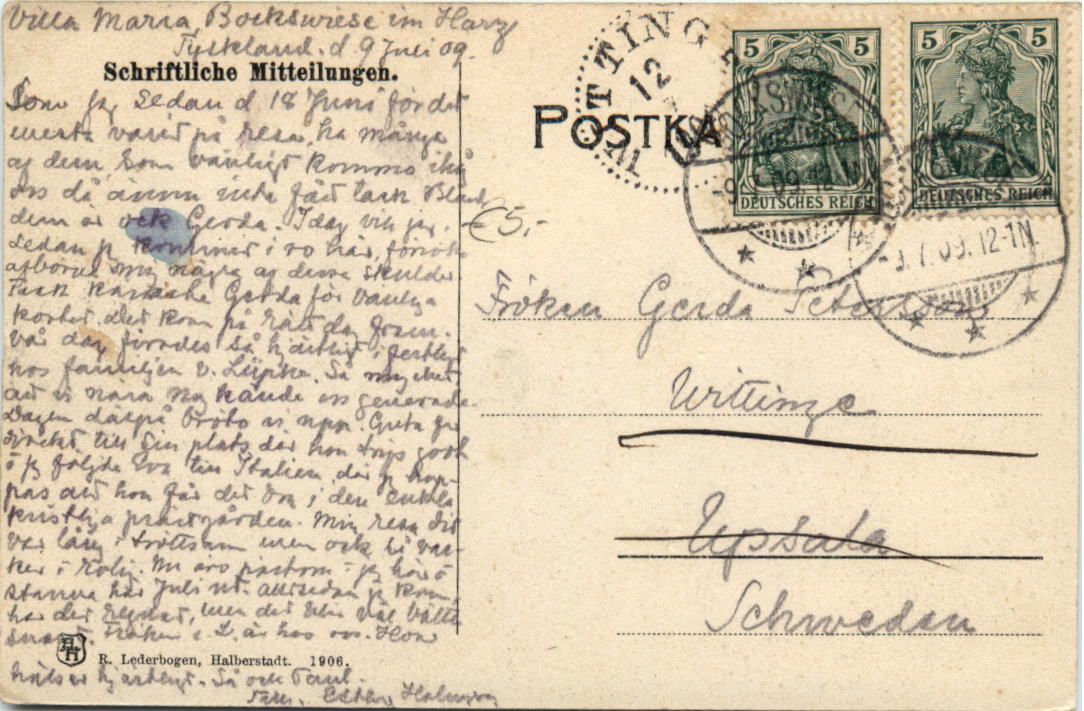 Villa Maria, Bockswiese im Harz
Tyskland. d 9 Juli 09.
Schriftliche Mitteilungen.
Som jag sedan d 18 Juni för det
mesta varit på resa, ha många
af dem, som vänligt kommo ihåg
oss då ännu inte fått tack. Bland
dem är ock Gerda. Idag vill jag,
sedan jag kommit i ro här, försöka
några af dessa skulder
Tack Gerda för vänliga
kortet. Det kom på rätt dag fram.
Vår dag firades så hjärtligt, festligt
hos familjen v. Lüpke. Så mycket
att vi nära kände oss generade.
Dagen därpå bröto vi upp. Greta
direkt till sin plats där hon trifs godt
o jag följde Eva till Italien, där jag hop-
pas att hon får det bra i den enkla
prästgården. Min resa dit
var lång o tröttsam men ock så vac-
ker o rolig. Nu
stanna här Juli ut. Alltsedan jag kom
har det regnat, men det blir väl bättre
snart. Fröken v. L är hos oss. Hon
R. Lederbogen, Halberstadt. 1906.
hälsar hjärtligt. Så ock Paul.
Esther
€5,-
POSTKA
WITTINGE
12
5 5
DEUTSCHES REICH
5 5
DEUTSCHES REICH
BOCKSWIESE
-9.7.09.12-1N.
-9.7.09.12-1N.
Fröken Gerda Petersson
Wittinge
Upsala
Schwedan